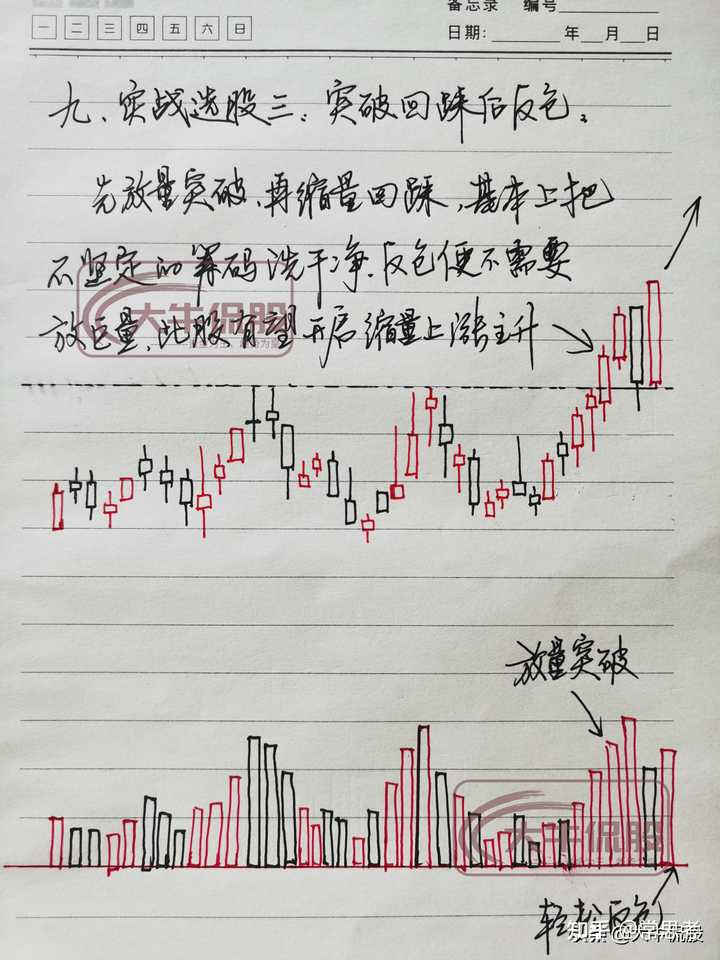 备忘录 编号
一 二 三 四 五 六 日
日期: 年 月 日
九、实战选股三:突破回踩后反包。
先放量突破,再缩量回踩,基本上把
不坚定的筹码洗干净,反包便不需要
放巨量,此股有望开启缩量上涨主升
大牛侃股
放量突破
大牛侃股
轻松反包
知乎 @学思考
头条 @大牛侃股